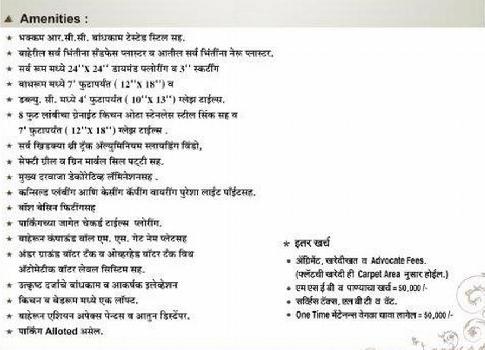 Amenities :
भक्कम आर.सी.सी. बांधकाम टेस्टेड स्टिल सह.
बाहेरील सर्व भिंतीना सँडफेस प्लास्टर व आतील सर्व भिंतींना नेरू प्लास्टर.
सर्व रूम मध्ये 24"X 24" डायमंड फ्लोरींग व 3" स्कर्टींग
बाथरूम मध्ये 7' फुटापर्यंत ( 12"X 18") व
डब्ल्यु. सी. मध्ये 4' फुटापर्यंत ( 10"X 13") ग्लेझ टाईल्स.
8 फुट लांबीचा ग्रेनाईट किचन ओटा स्टेनलेस स्टील सिंक सह व
7' फुटापर्यंत ( 12"X 18") ग्लेझ टाईल्स .
सर्व खिडक्या थ्री ट्रॅक अ‍ॅल्युमिनियम स्लायडिंग विंडो,
सेफ्टी ग्रील व ग्रिन मार्वल सिल पट्टी सह.
मुख्य दरवाजा डेकोरेटिव्ह लॅमिनेशनसह .
कन्सिल्ड प्लंबींग आणि केसींग कॅपींग वायरींग पुरेशा लाईट पॉईंटसह.
वॉश बेसिन फिटींगसह
पार्किंगच्या जागेत चेकर्ड टाईल्स फ्लोरींग.
बाहेरून कंपाऊंड वॉल एम. एस. गेट नेम प्लेटसह
अंडर ग्राऊंड वॉटर टँक व ओव्हरहेड वॉटर टँक विथ
अ‍ॅटोमेटीक वॉटर लेवल सिस्टिम सह.
उत्कृष्ठ दर्जाचे बांधकाम व आकर्षक इलेव्हेशन
किचन व बेडरूम मध्ये एक लॉफ्ट.
बाहेरून एशियन अपेक्स पेन्टस व आतुन डिस्टेंपर.
पार्किंग Alloted असेल.
इतर खर्च
अ‍ॅग्रिमेंट, खरेदीखत व Advocate Fees.
(फ्लॅटची खरेदी ही Carpet Area नुसार होईल.)
एम एस ई बी व पाण्याचा खर्च = 50,000 /-
सर्व्हिस टॅक्स, एल बी टी व वॅट.
One Time मेंटेनन्स वेगळा द्यावा लागेल = 50,000 /-